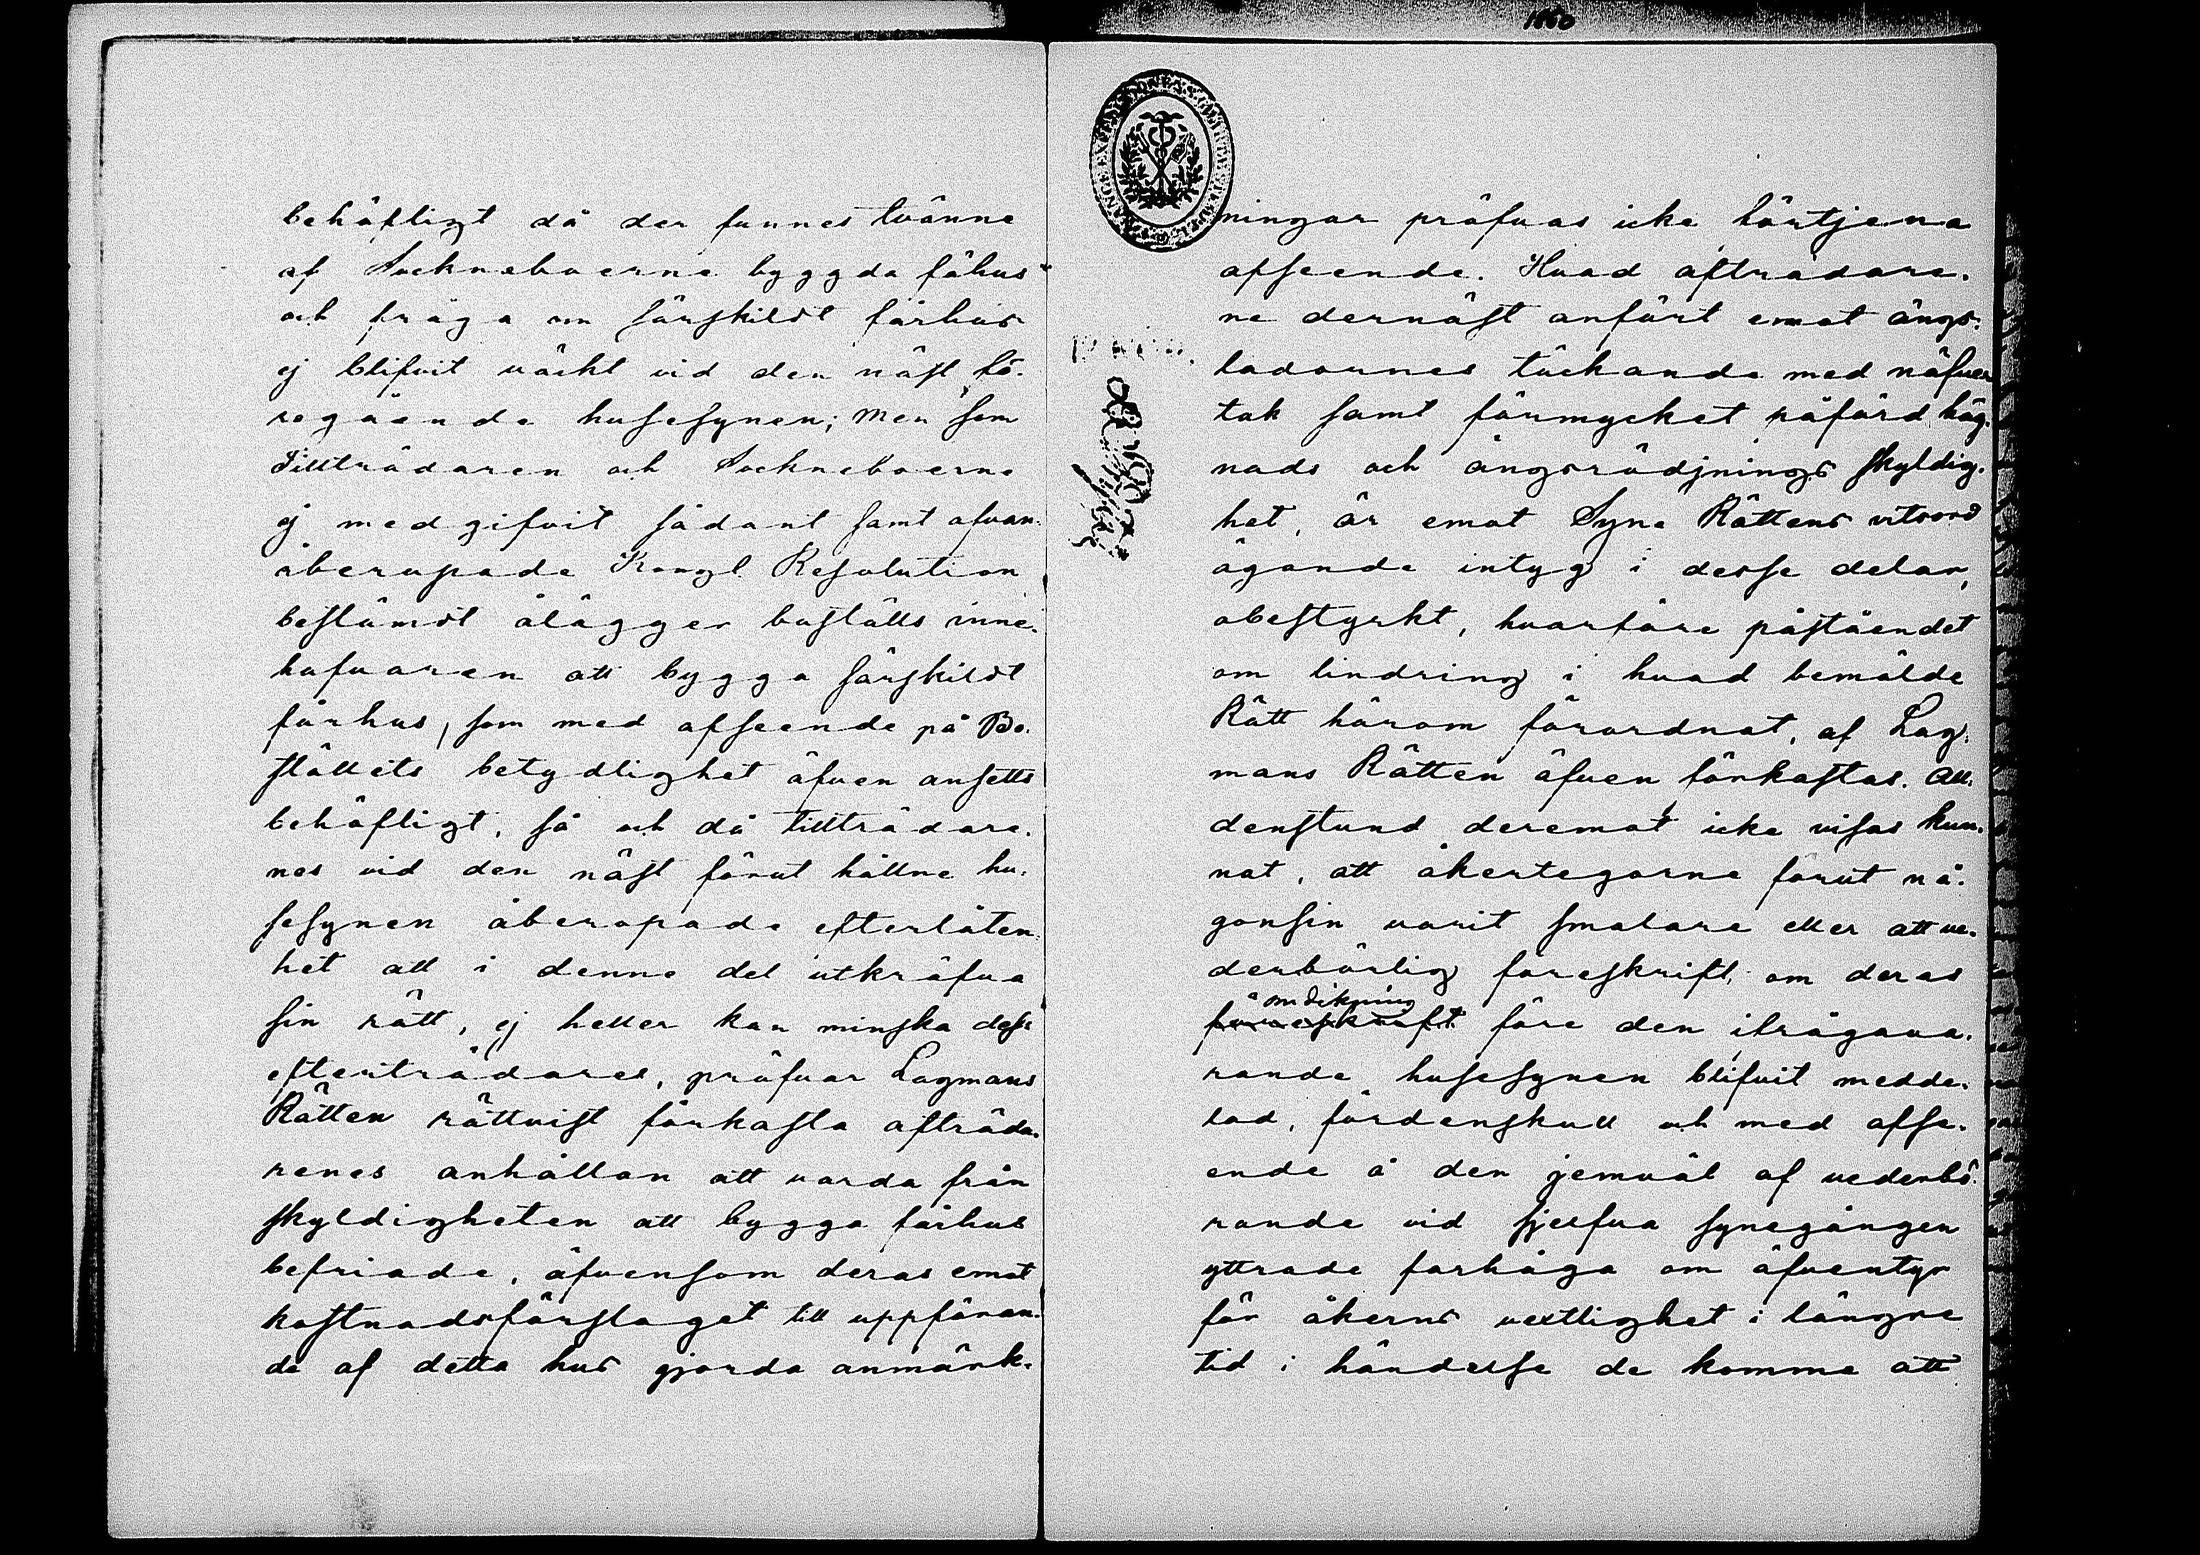 behöfligt då der funnes tvänne
af Socknеboerne byggda fähus
och fråga om särskildt fårhus
ej blifvit väckt vid den näst fö-
regående husesynen; men som
Tillträdaren och Sockneboerne
ej medgifvit sådant samt ofvan-
åberopade Kongl. Resolution
bestämdt ålägger boställs inne-
hafvaren att bygga särskildt
fårhus, som med afseende på Bo-
ställets betydlighet äfven ansetts
behöfligt, så och då tillträdare-
nes vid den näst förut hållne hu-
sesynen åberopade efterlåten-
het att i denne del utkräfva
sin rätt, ej heller kan minska dess
efterträdares, pröfvar Lagmans
Rätten rättvist förkasta afträda-
renes anhållan att varda från
skyldigheten att bygga fårhus
befriade, äfvensom deras emot
kostnadsförslaget till uppföran-
de af detta hus gjorda anmärk-
1860
ningar pröfvas icke förtjena
afseende. Hvad afträdare-
ne dernäst anfört emot ängs-
ladornes täckande med näfver
tak samt förmycket påförd häg-
nads och ängsrödjnings skyldig-
het, är emot Syne Rättens vitsord
ägande intyg i desse delar,
obestyrkt, hvarföre påståendet
om lindring i hvad bemälde
Rätt härom förordnat, af Lag-
mans Rätten äfven förkastas. All-
denstund deremot icke visas kun-
nat, att åkertegarne förut nå-
gonsin varit smalare eller att ve-
derbörlig föreskrift, om deras
omdikning
föreskrift före den ifrågava-
rande husesynen blifvit medde-
lad, fördenskull och med afse-
ende å den jemväl af vederbö-
rande vid sjelfva synegången
yttrade farhåga om äfventyr
för åkerns växtlighet i längre
tid i händelse de komme att